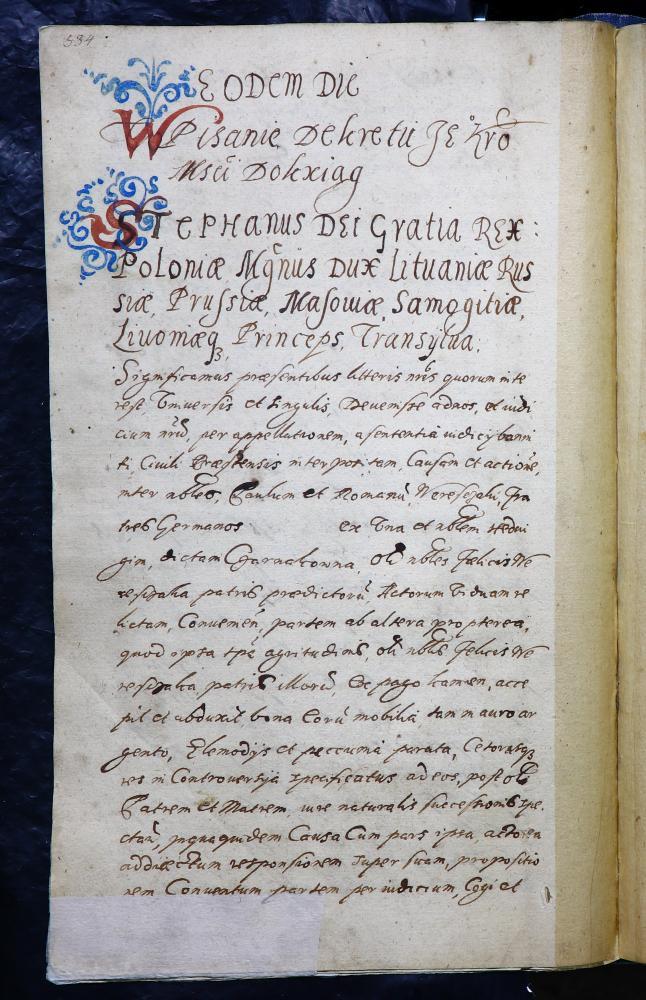 534
EODEM DIE
WPisanie Dekretu JE Kro
Mści Do kxiąg
STEPHANUS DEI Gratia REX:
Poloniæ, Mgnus DUX Lituaniæ Rus
siæ, Prussiæ, Masoviæ, Samogitiæ,
Livoniæq3 Princeps, Transylva:
Significamus præsentibus litteris nris quorum inte
rest, Universis et singulis, Devenisse ad nos, et iudi
cium nrũ, per appellationem, a sententia iudicÿ banni
ti, Civili, interpositam, Causam et actionẽ,
inter nbles, Paulum et Romanũ, fra
tres Germanos ex Una et nblem
dictam Czarnakowna, oli nblis Fælicis We
reszczaka patris prædictorũ Actorum Viduam re
lictam, Convenẽn, partem ab altera propterea,
quod ipsa tpe ægritudinis, oli nblis Felicis We
reszczaka, patris illorũ, Ex pago kamien, acce
pit et abduxit bona Eorũ mobilia tam in auro ar
gento, Elemodÿs et peccunia parata, Cetorasq3
res in Controversia specificatas ad eos, post oli
Patrem et Matrem, iure naturalis successionis spe
ctañ, in qua quidem Causa Cum pars ipsa, actorea
ad directum responsionem super suam, propositio
nem Conventam partem per iudicium, Cogi et